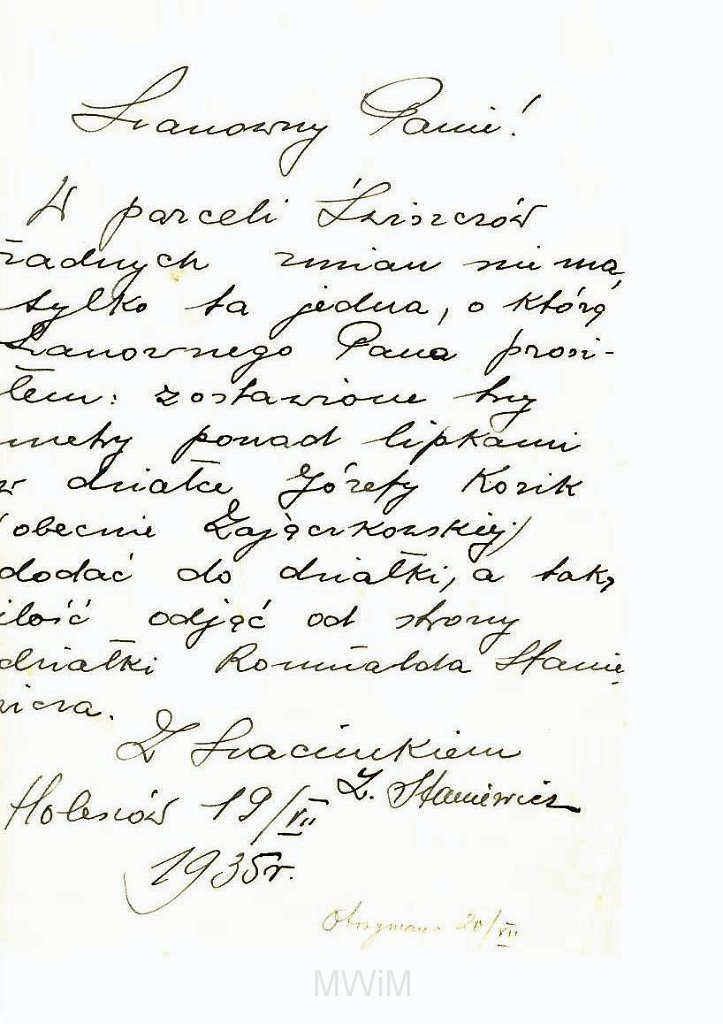 Szanowny Panie!
W parceli Świszczów
żadnych zmian nie ma,
tylko ta jedna, o którą
Szanownego Pana prosi-
łem: zostawione trzy
metry ponad lipkami
w działce Józefy Kozik
(obecnie Zajączkowskiej)
dodać do działki, a taką
ilość odjąć od strony
działki Romualda Stanie-
wicza.
Z szacunkiem
Z. Staniewicz
Holeszów 19/VII
1935r.
Otrzymano 20/VII
MWiM